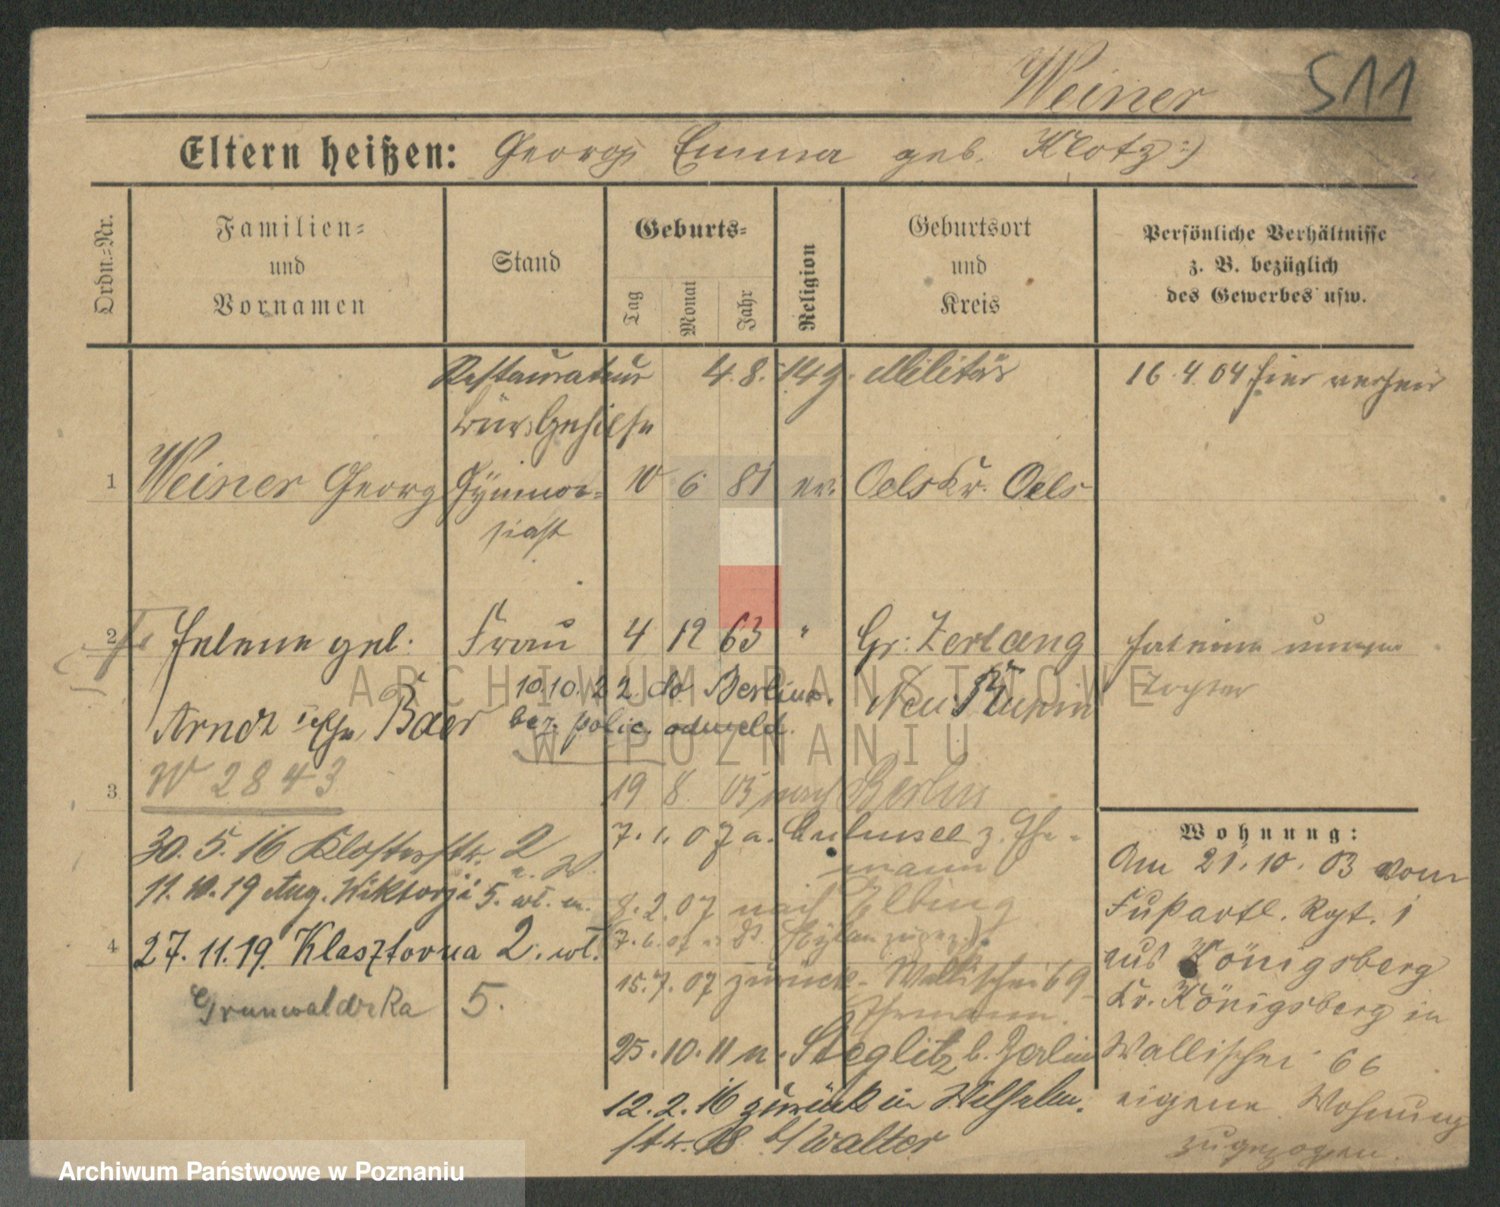 Weiner S11
Eltern heißen: Georg Emma geb. Klotz :)
Ordn.=Nr.
Familien=
und
Vornamen
Stand
Geburts=
Tag
Monat
Jahr
Religion
Geburtsort
und
Kreis
Persönliche Verhältnisse
z. B. bezüglich
des Gewerbes usw.
Restaurateur 4. 8. 14 Militär 16. 4. 04 hier
1 Weiner Georg Gymna= 10 6 81 ev. Oels Kr. Oels
siast
2 Helene geb: Frau 4 12 63 " Gr: Zerlang
10.10.22. do Berlina.
Arndt Baer bez. polic. odmeld. Neu
Tochter
W 2843
3 19 8 05 nach Berlin
Wohnung:
30. 5. 16 Klosterstr. 2
7. 1. 07
mann
Am 21. 10. 03 vom
11. 10. 19 Aug. Wiktorji 5. wł. m.
8. 2. 07 nach Elbing
Fußartl. Rgt. 1
4 27. 11. 19. Klasztorna 2. wł.
aus Königsberg
15. 7. 07 zurück Wallischei 69
Grunwaldzka 5.
Ehemann.
Kr. Königsberg in
25. 10. 11 n. Steglitz b. Berlin
Wallischei 66
12. 2. 16 zurück in Wilhelm.
eigene Wohnung
str. 18 b/Walter
zugezogen.
ARCHIWUM PAŃSTWOWE
W POZNANIU
Archiwum Państwowe w Poznaniu